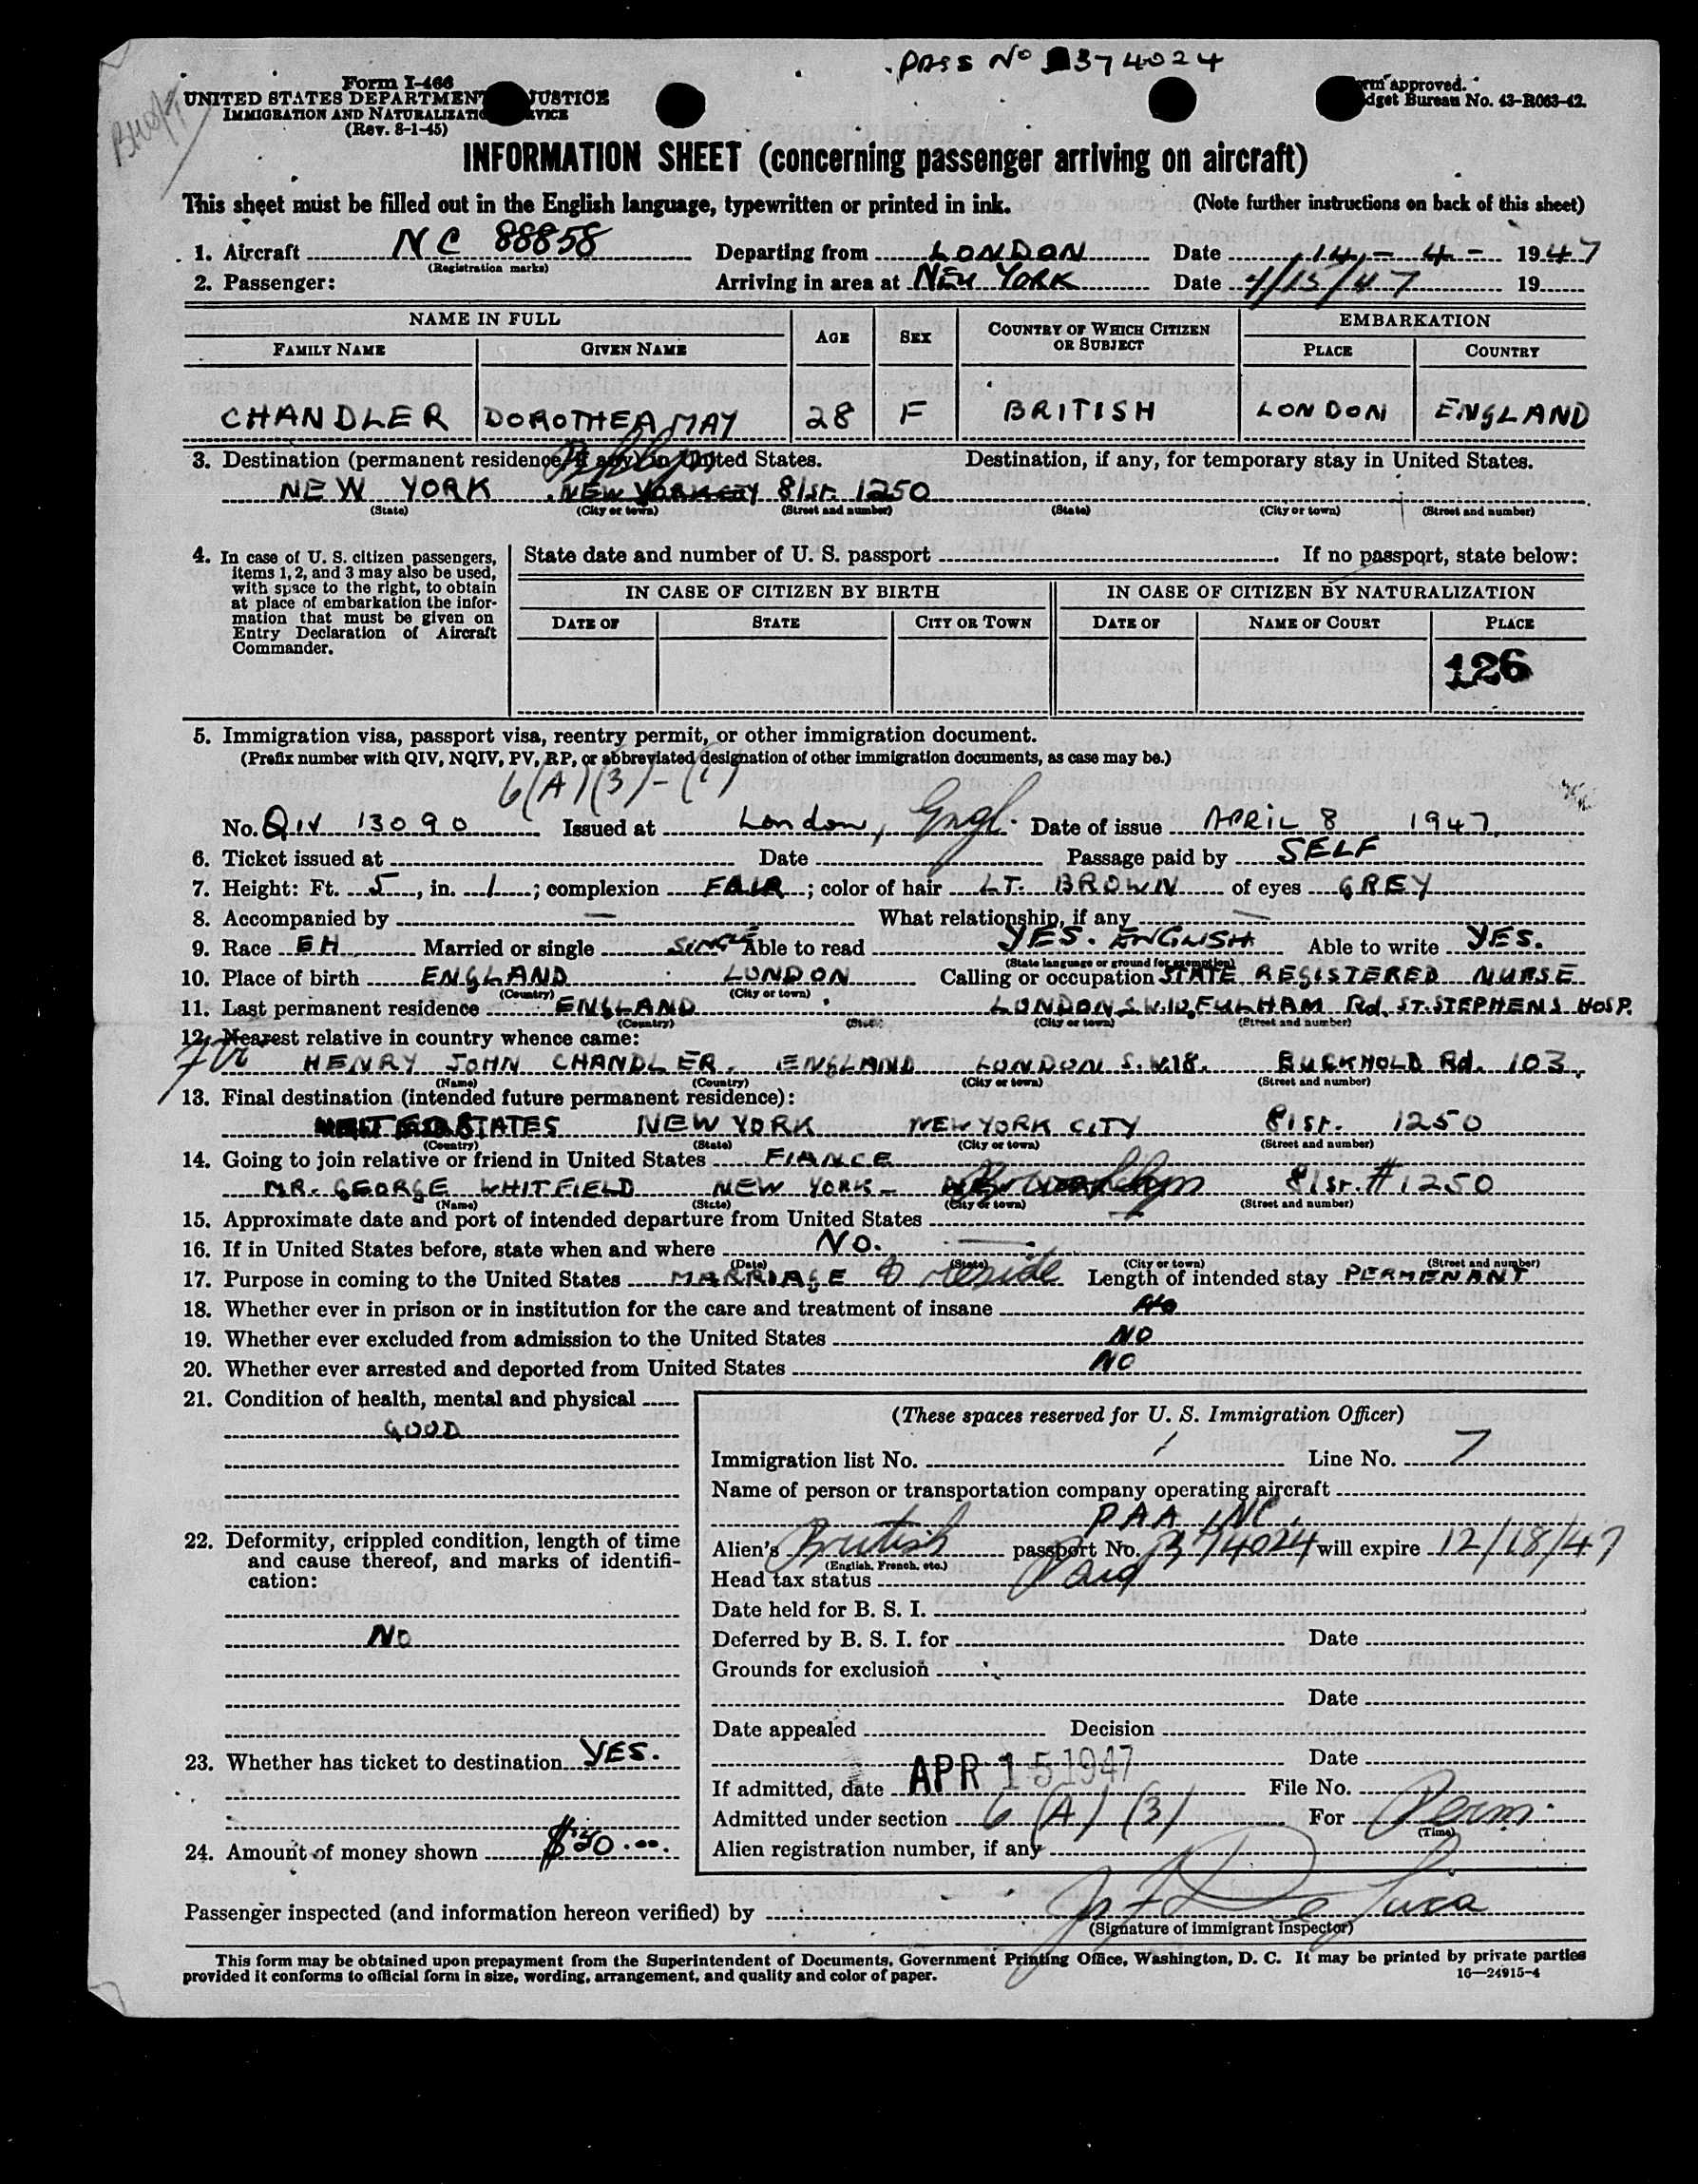 PASS No 374024
Form I-466
UNITED STATES DEPARTMENT JUSTICE
IMMIGRATION AND NATURALIZATIO VICE
(Rev. 8-1-45)
rm approved.
dget Bureau No. 43-R063-42.
INFORMATION SHEET (concerning passenger arriving on aircraft)
This sheet must be filled out in the English language, typewritten or printed in ink. (Note further instructions on back of this sheet)
1. Aircraft NC 88858 Departing from LONDON Date 14 - 4 - 1947
(Registration marks)
2. Passenger: Arriving in area at NEW YORK Date 4/15/47 19
NAME IN FULL AGE SEX COUNTRY OF WHICH CITIZEN OR SUBJECT EMBARKATION
FAMILY NAME GIVEN NAME PLACE COUNTRY
CHANDLER DOROTHEA MAY 28 F BRITISH LONDON ENGLAND
3. Destination (permanent residence, if any) in United States. Destination, if any, for temporary stay in United States.
Brooklyn
NEW YORK NEW YORK CITY 81ST. 1250
(State) (City or town) (Street and number) (State) (City or town) (Street and number)
4. In case of U. S. citizen passengers, items 1, 2, and 3 may also be used, with space to the right, to obtain at place of embarkation the information that must be given on Entry Declaration of Aircraft Commander.
State date and number of U. S. passport If no passport, state below:
IN CASE OF CITIZEN BY BIRTH IN CASE OF CITIZEN BY NATURALIZATION
DATE OF STATE CITY OR TOWN DATE OF NAME OF COURT PLACE
126
5. Immigration visa, passport visa, reentry permit, or other immigration document.
(Prefix number with QIV, NQIV, PV, RP, or abbreviated designation of other immigration documents, as case may be.)
6(A)(3)-(1)
No. QIV 13090 Issued at London, Engl. Date of issue APRIL 8 1947
6. Ticket issued at Date Passage paid by SELF
7. Height: Ft. 5, in. 1; complexion FAIR; color of hair LT. BROWN of eyes GREY
8. Accompanied by — What relationship, if any —
9. Race EH Married or single SINGLE Able to read YES. ENGLISH Able to write YES.
(State language or ground for exemption)
10. Place of birth ENGLAND LONDON Calling or occupation STATE REGISTERED NURSE
(Country) (City or town)
11. Last permanent residence ENGLAND LONDON S.W.10, FULHAM Rd. ST. STEPHENS HOSP.
(Country) (State) (City or town) (Street and number)
12. Nearest relative in country whence came:
HENRY JOHN CHANDLER. ENGLAND LONDON S.W.18. BUCKHOLD Rd. 103.
(Name) (Country) (City or town) (Street and number)
13. Final destination (intended future permanent residence):
STATES NEW YORK NEW YORK CITY 81ST. 1250
(Country) (State) (City or town) (Street and number)
14. Going to join relative or friend in United States FIANCE
MR. GEORGE WHITFIELD NEW YORK - Brooklyn 81ST. #1250
(Name) (State) (City or town) (Street and number)
15. Approximate date and port of intended departure from United States —
16. If in United States before, state when and where NO. —
(Date) (State) (City or town) (Street and number)
17. Purpose in coming to the United States MARRIAGE & reside Length of intended stay PERMENANT
18. Whether ever in prison or in institution for the care and treatment of insane NO
19. Whether ever excluded from admission to the United States NO
20. Whether ever arrested and deported from United States NO
21. Condition of health, mental and physical
GOOD
22. Deformity, crippled condition, length of time and cause thereof, and marks of identification:
NO
23. Whether has ticket to destination YES.
24. Amount of money shown $50.00.
(These spaces reserved for U. S. Immigration Officer)
Immigration list No. 1 Line No. 7
Name of person or transportation company operating aircraft
PAA INC.
Alien's British passport No. 374024 will expire 12/18/47
(English, French, etc.)
Head tax status Paid
Date held for B. S. I.
Deferred by B. S. I. for Date
Grounds for exclusion
Date
Date appealed Decision
Date
If admitted, date APR 15 1947 File No.
Admitted under section 6 (A) (3) For Perm.
(Time)
Alien registration number, if any
Passenger inspected (and information hereon verified) by
(Signature of immigrant inspector)
This form may be obtained upon prepayment from the Superintendent of Documents, Government Printing Office, Washington, D. C. It may be printed by private parties
provided it conforms to official form in size, wording, arrangement, and quality and color of paper. 16—24915-4